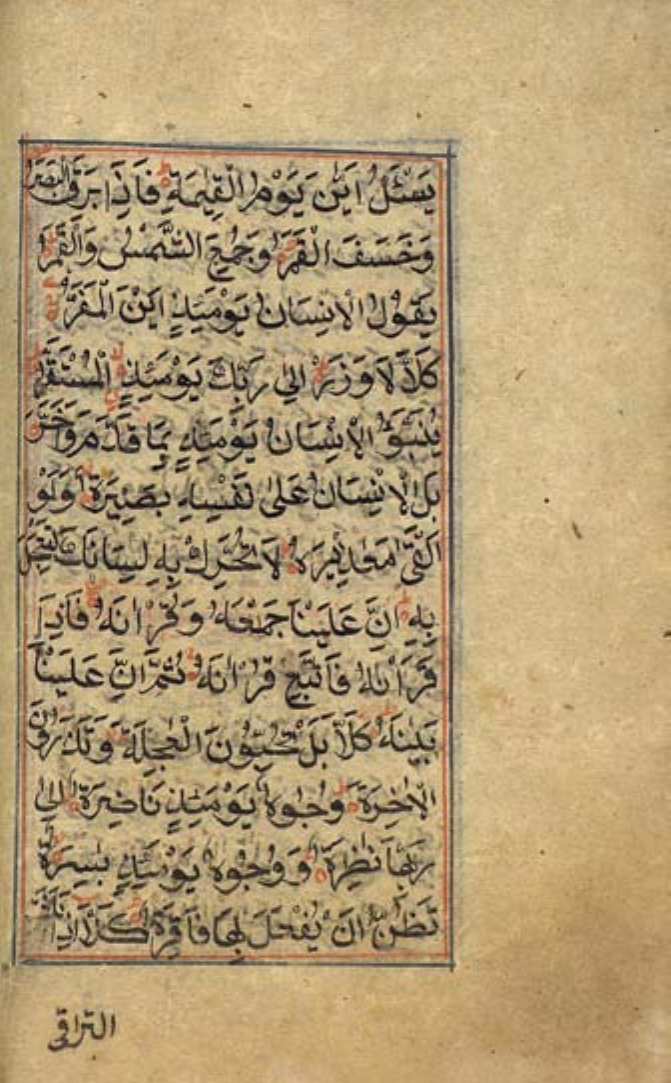 يَسْئَلُ اَيَّانَ يَوْمُ الْقِيٰمَةِ فَاِذَا بَرِقَ الْبَصَرُ
وَخَسَفَ الْقَمَرُ وَجُمِعَ الشَّمْسُ وَالْقَمَرُ
يَقُولُ الْاِنْسَانُ يَوْمَئِذٍ اَيْنَ الْمَفَرُّ
كَلَّا لَا وَزَرَ اِلٰى رَبِّكَ يَوْمَئِذٍ الْمُسْتَقَرُّ
يُنَبَّؤُ الْاِنْسَانُ يَوْمَئِذٍ بِمَا قَدَّمَ وَاَخَّرَ
بَلِ الْاِنْسَانُ عَلٰى نَفْسِهٖ بَصِيْرَةٌ وَلَوْ
اَلْقٰى مَعَاذِيْرَهٗ لَا تُحَرِّكْ بِهٖ لِسَانَكَ لِتَعْجَلَ
بِهٖ اِنَّ عَلَيْنَا جَمْعَهٗ وَقُرْاٰنَهٗ فَاِذَا
قَرَاْنٰهُ فَاتَّبِعْ قُرْاٰنَهٗ ثُمَّ اِنَّ عَلَيْنَا
بَيَانَهٗ كَلَّا بَلْ تُحِبُّوْنَ الْعَاجِلَةَ وَتَذَرُوْنَ
الْاٰخِرَةَ وُجُوْهٌ يَوْمَئِذٍ نَاضِرَةٌ اِلٰى
رَبِّهَا نَاظِرَةٌ وَوُجُوْهٌ يَوْمَئِذٍ بَاسِرَةٌ
تَظُنُّ اَنْ يُفْعَلَ بِهَا فَاقِرَةٌ كَلَّا اِذَا بَلَغَتِ
التراقي